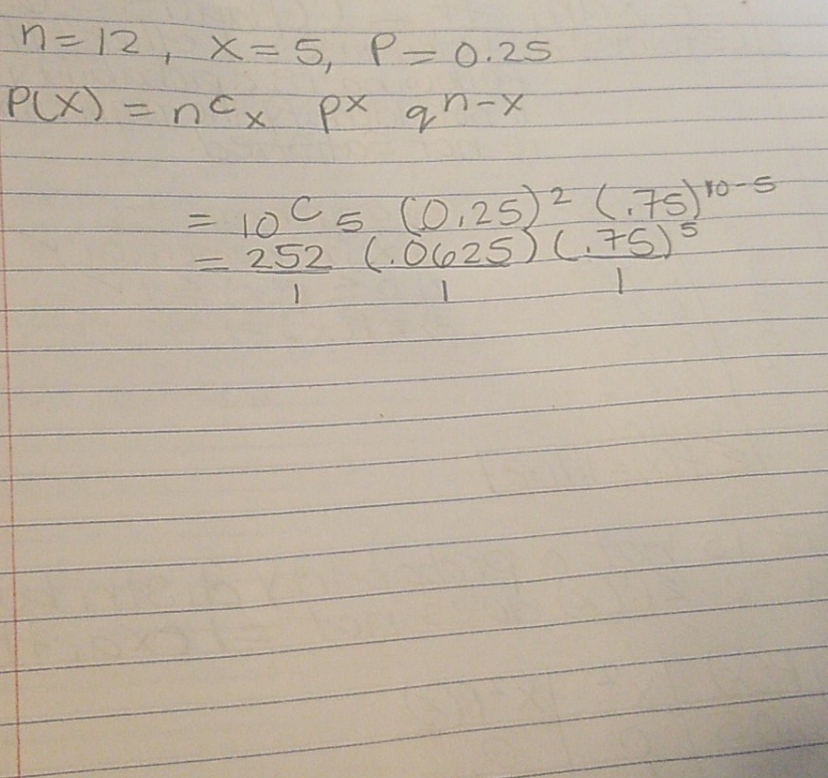 n=12, x=5, P=0.25
P(X) = nCx pˣ qⁿ⁻ˣ
= 10C5 (0.25)² (.75)¹⁰⁻⁵
= 252 (.0625) (.75)⁵
1 1 1